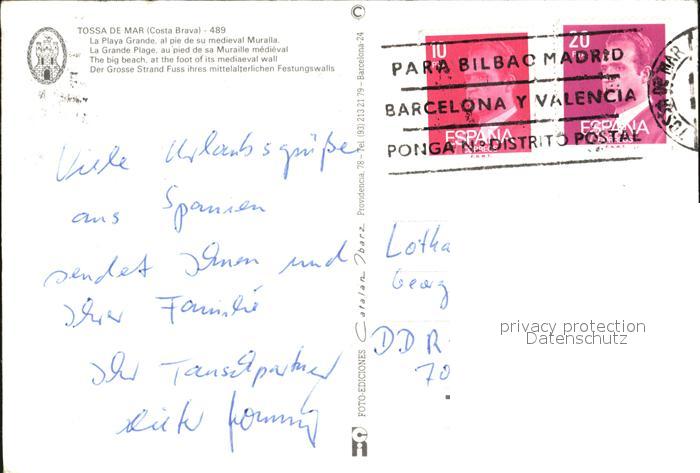 TOSSA DE MAR (Costa Brava) - 489
La Playa Grande, al pie de su medieval Muralla.
La Grande Plage, au pied de sa Muraille médiéval
The big beach, at the foot of its mediaeval wall
Der Grosse Strand Fuss ihres mittelalterlichen Festungswalls
Viele Urlaubsgrüße
aus Spanien
sendet Ihnen und
Ihrer Familie
Ihr Tauschpartner
Dieter
FOTO-EDICIONES Catalan Ibarz Providencia, 78 - Tel. (93) 213 21 79 - Barcelona-24
10
20
ESPAÑA
ESPAÑA
PARA BILBAO MADRID
BARCELONA Y VALENCIA
PONGA Nº DISTRITO POSTAL
TOSSA DE MAR
Lotha
Georg
DDR
70
privacy protection
Datenschutz